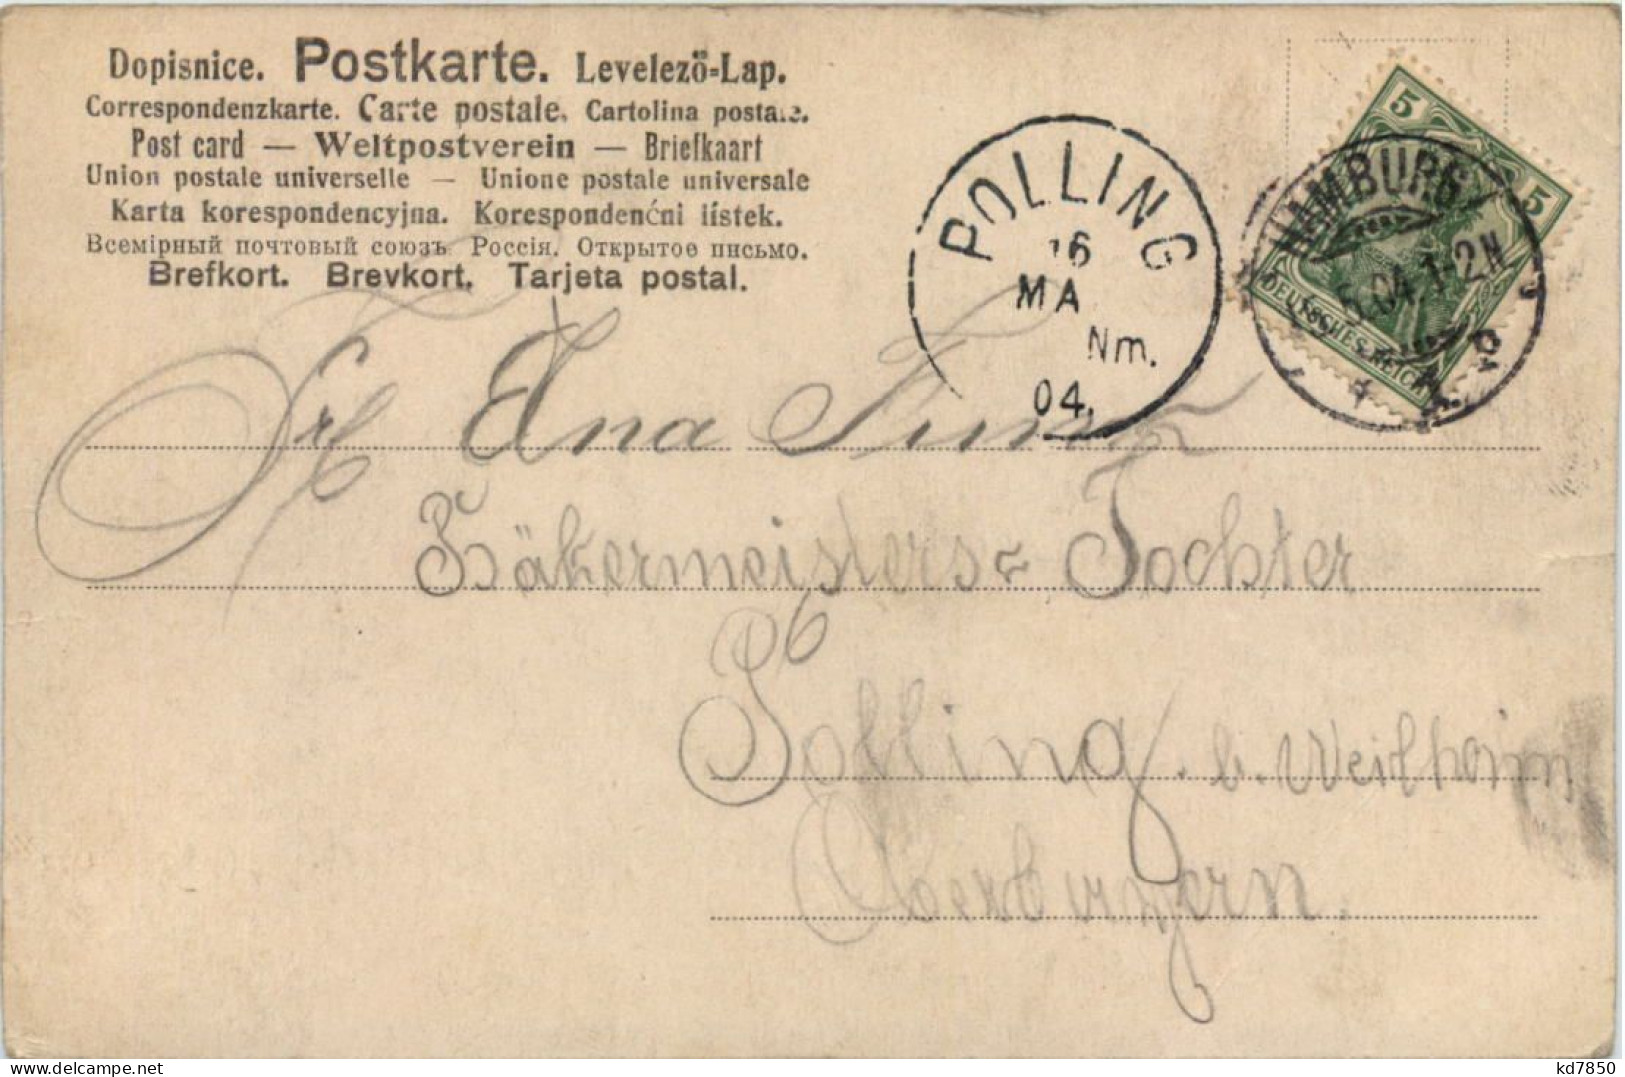 Dopisnice. Postkarte. Levelező-Lap.
Correspondenzkarte. Carte postale. Cartolina postale.
Post card — Weltpostverein — Briefkaart
Union postale universelle — Unione postale universale
Karta korespondencyjna. Korespondenćni lístek.
Всемірный почтовый союзъ Россія. Открытое письмо.
Brefkort. Brevkort. Tarjeta postal.
POLLING
16
MA
Nm.
04.
5
5
DEUTSCHES REICH
HAMBURG
5.04. 1-2N
Frl Ana
Bäkermeisters Tochter
Polling b. Weilheim
Oberbayern.
delcampe.net
kd7850